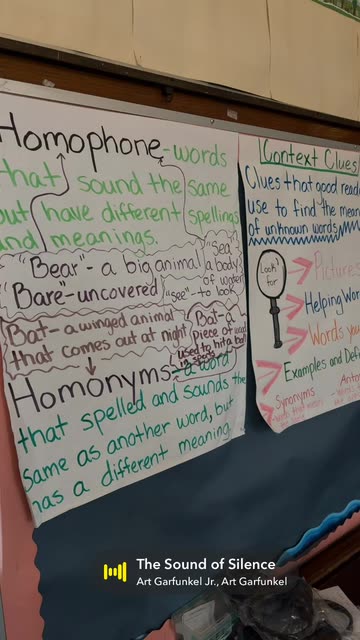 Homophone-words
that sound the same
but have different spellings
and meanings.
"Bear"- a big animal
"Bare"-uncovered
"sea"
a body
of water
"see"- to look
Bat- a winged animal
that comes out at night
Bat- a
piece of wood
used to hit a ball
in sports
Homonyms-a word
that spelled and sounds the
same as another word, but
has a different meaning.
Context Clues
Clues that good read
use to find the mean
of unknown words
Look
for
Pictures
Helping Wor
Words yo
Examples and Defi
Synonyms
Anto
The Sound of Silence
Art Garfunkel Jr., Art Garfunkel